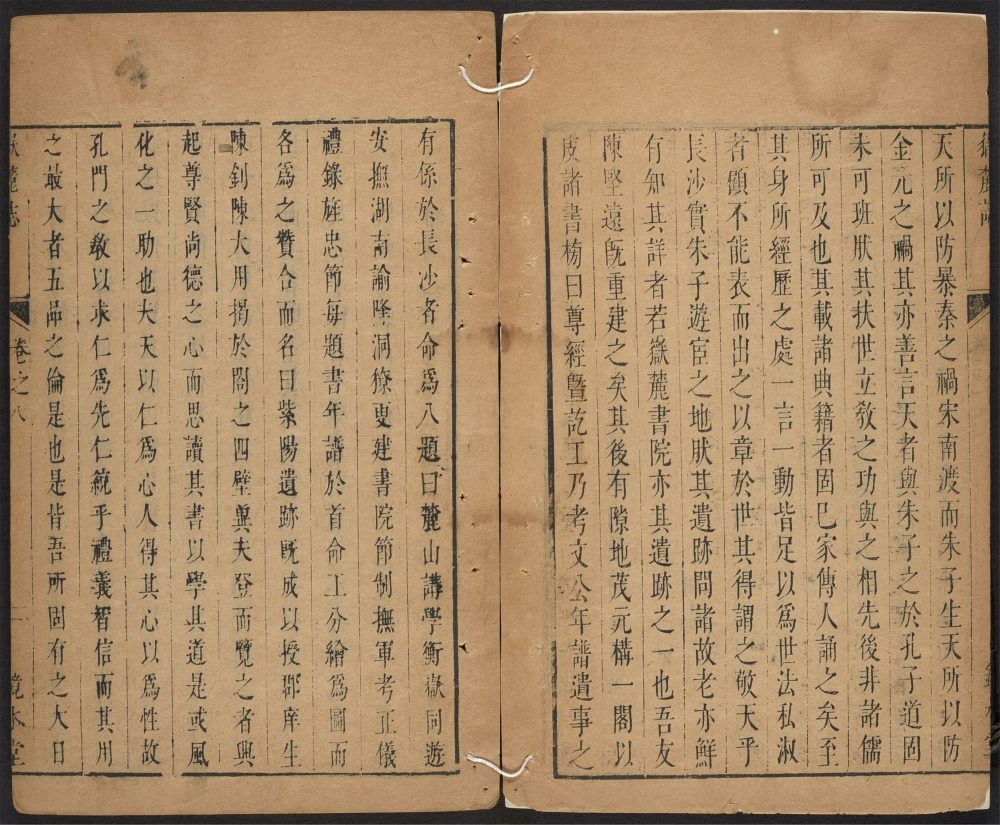 嶽麓志
天所以防暴秦之禍宋南渡而朱子生天所以防
金元之禍其亦善言天者與朱子之於孔子道固
未可班肰其扶世立敎之功與之相先後非諸儒
所可及也其載諸典籍者固已家傳人誦之矣至
其身所經歷之處一言一動皆足以爲世法私淑
者顧不能表而出之以章於世其得謂之敬天乎
長沙實朱子遊宦之地肰其遺跡問諸故老亦鮮
有知其詳者若嶽麓書院亦其遺跡之一也吾友
陳堅遠旣重建之矣其後有隙地茂元構一閣以
庋諸書榜曰尊經曁訖工乃考文公年譜遺事之
有係於長沙者命爲八題曰麓山講學衡嶽同遊
安撫湖南諭降洞獠更建書院節制撫軍考正儀
禮錄旌忠節每題書年譜於首命工分繪爲圖而
各爲之贊合而名曰紫陽遺跡旣成以授郡庠生
陳釗陳大用揭於閣之四壁兾夫登而覽之者興
起尊賢尚德之心而思讀其書以學其道是或風
化之一助也夫天以仁爲心人得其心以爲性故
孔門之敎以求仁爲先仁統乎禮義智信而其用
之最大者五品之倫是也是皆吾所固有之大日
嶽麓志
卷之八
二
鏡水堂